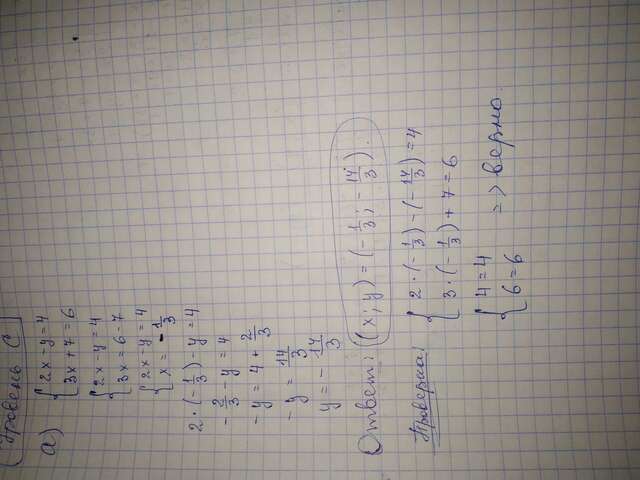 Уровень С
а) { 2x - y = 4
{ 3x + 7 = 6
{ 2x - y = 4
{ 3x = 6 - 7
{ 2x - y = 4
{ x = - 1/3
2 · (- 1/3) - y = 4
- 2/3 - y = 4
- y = 4 + 2/3
- y = 14/3
y = - 14/3
Ответ: (x; y) = (- 1/3; - 14/3).
Проверка:
{ 2 · (- 1/3) - (- 14/3) = 4
{ 3 · (- 1/3) + 7 = 6
{ 4 = 4
{ 6 = 6 => верно.